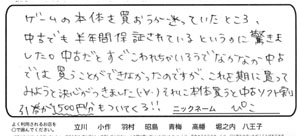 ゲームの本体を買おうか迷っていたところ、
中古でも半年間保証されているというのに驚きま
した。中古だとすぐこわれちゃいそうでなかなか中古
では買うことができなかったのですが、これを期に買って
みようと決心がつきました(^^)それに本体買うと中古ソフト割
引券が1,500円分もついてくる!! ニックネーム ぴこ
よく利用されるお店を
○で囲んでください。 立川 小作 羽村 昭島 青梅 高幡 堀之内 八王子